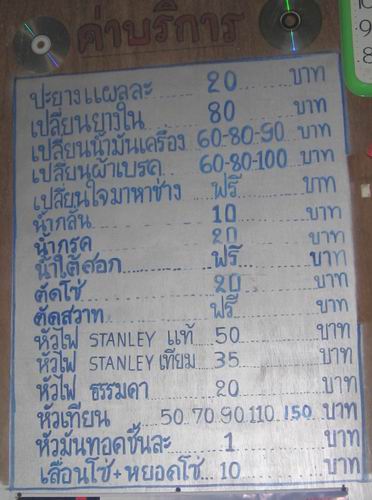 ค่าบริการ
ปะยางแผลละ 20 บาท
เปลี่ยนยางใน 80 บาท
เปลี่ยนน้ำมันเครื่อง 60-80-90 บาท
เปลี่ยนผ้าเบรค 60-80-100 บาท
เปลี่ยนใจมาหาช่าง ฟรี บาท
น้ำกลั่น 10 บาท
น้ำกรด 20 บาท
น้ำใต้ศอก ฟรี บาท
ตัดโซ่ 20 บาท
ตัดสวาท ฟรี บาท
หัวไฟ STANLEY แท้ 50 บาท
หัวไฟ STANLEY เทียม 35 บาท
หัวไฟ ธรรมดา 20 บาท
หัวเทียน 50 70 90 110 150 บาท
หัวมันทอดชิ้นละ 1 บาท
เลื่อนโซ่+หยอดโซ่ 10 บาท